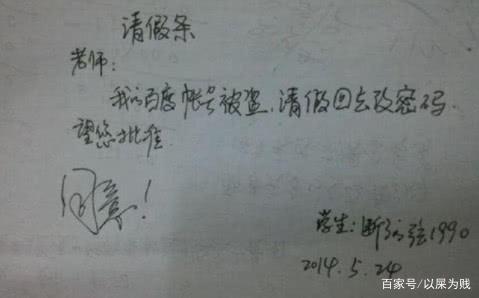 请假条
老师：
我的百度帐号被盗，请假回去改密码.
望您批准
同意！
学生：断的弦1990
2014.5.24
百家号/以屎为贱